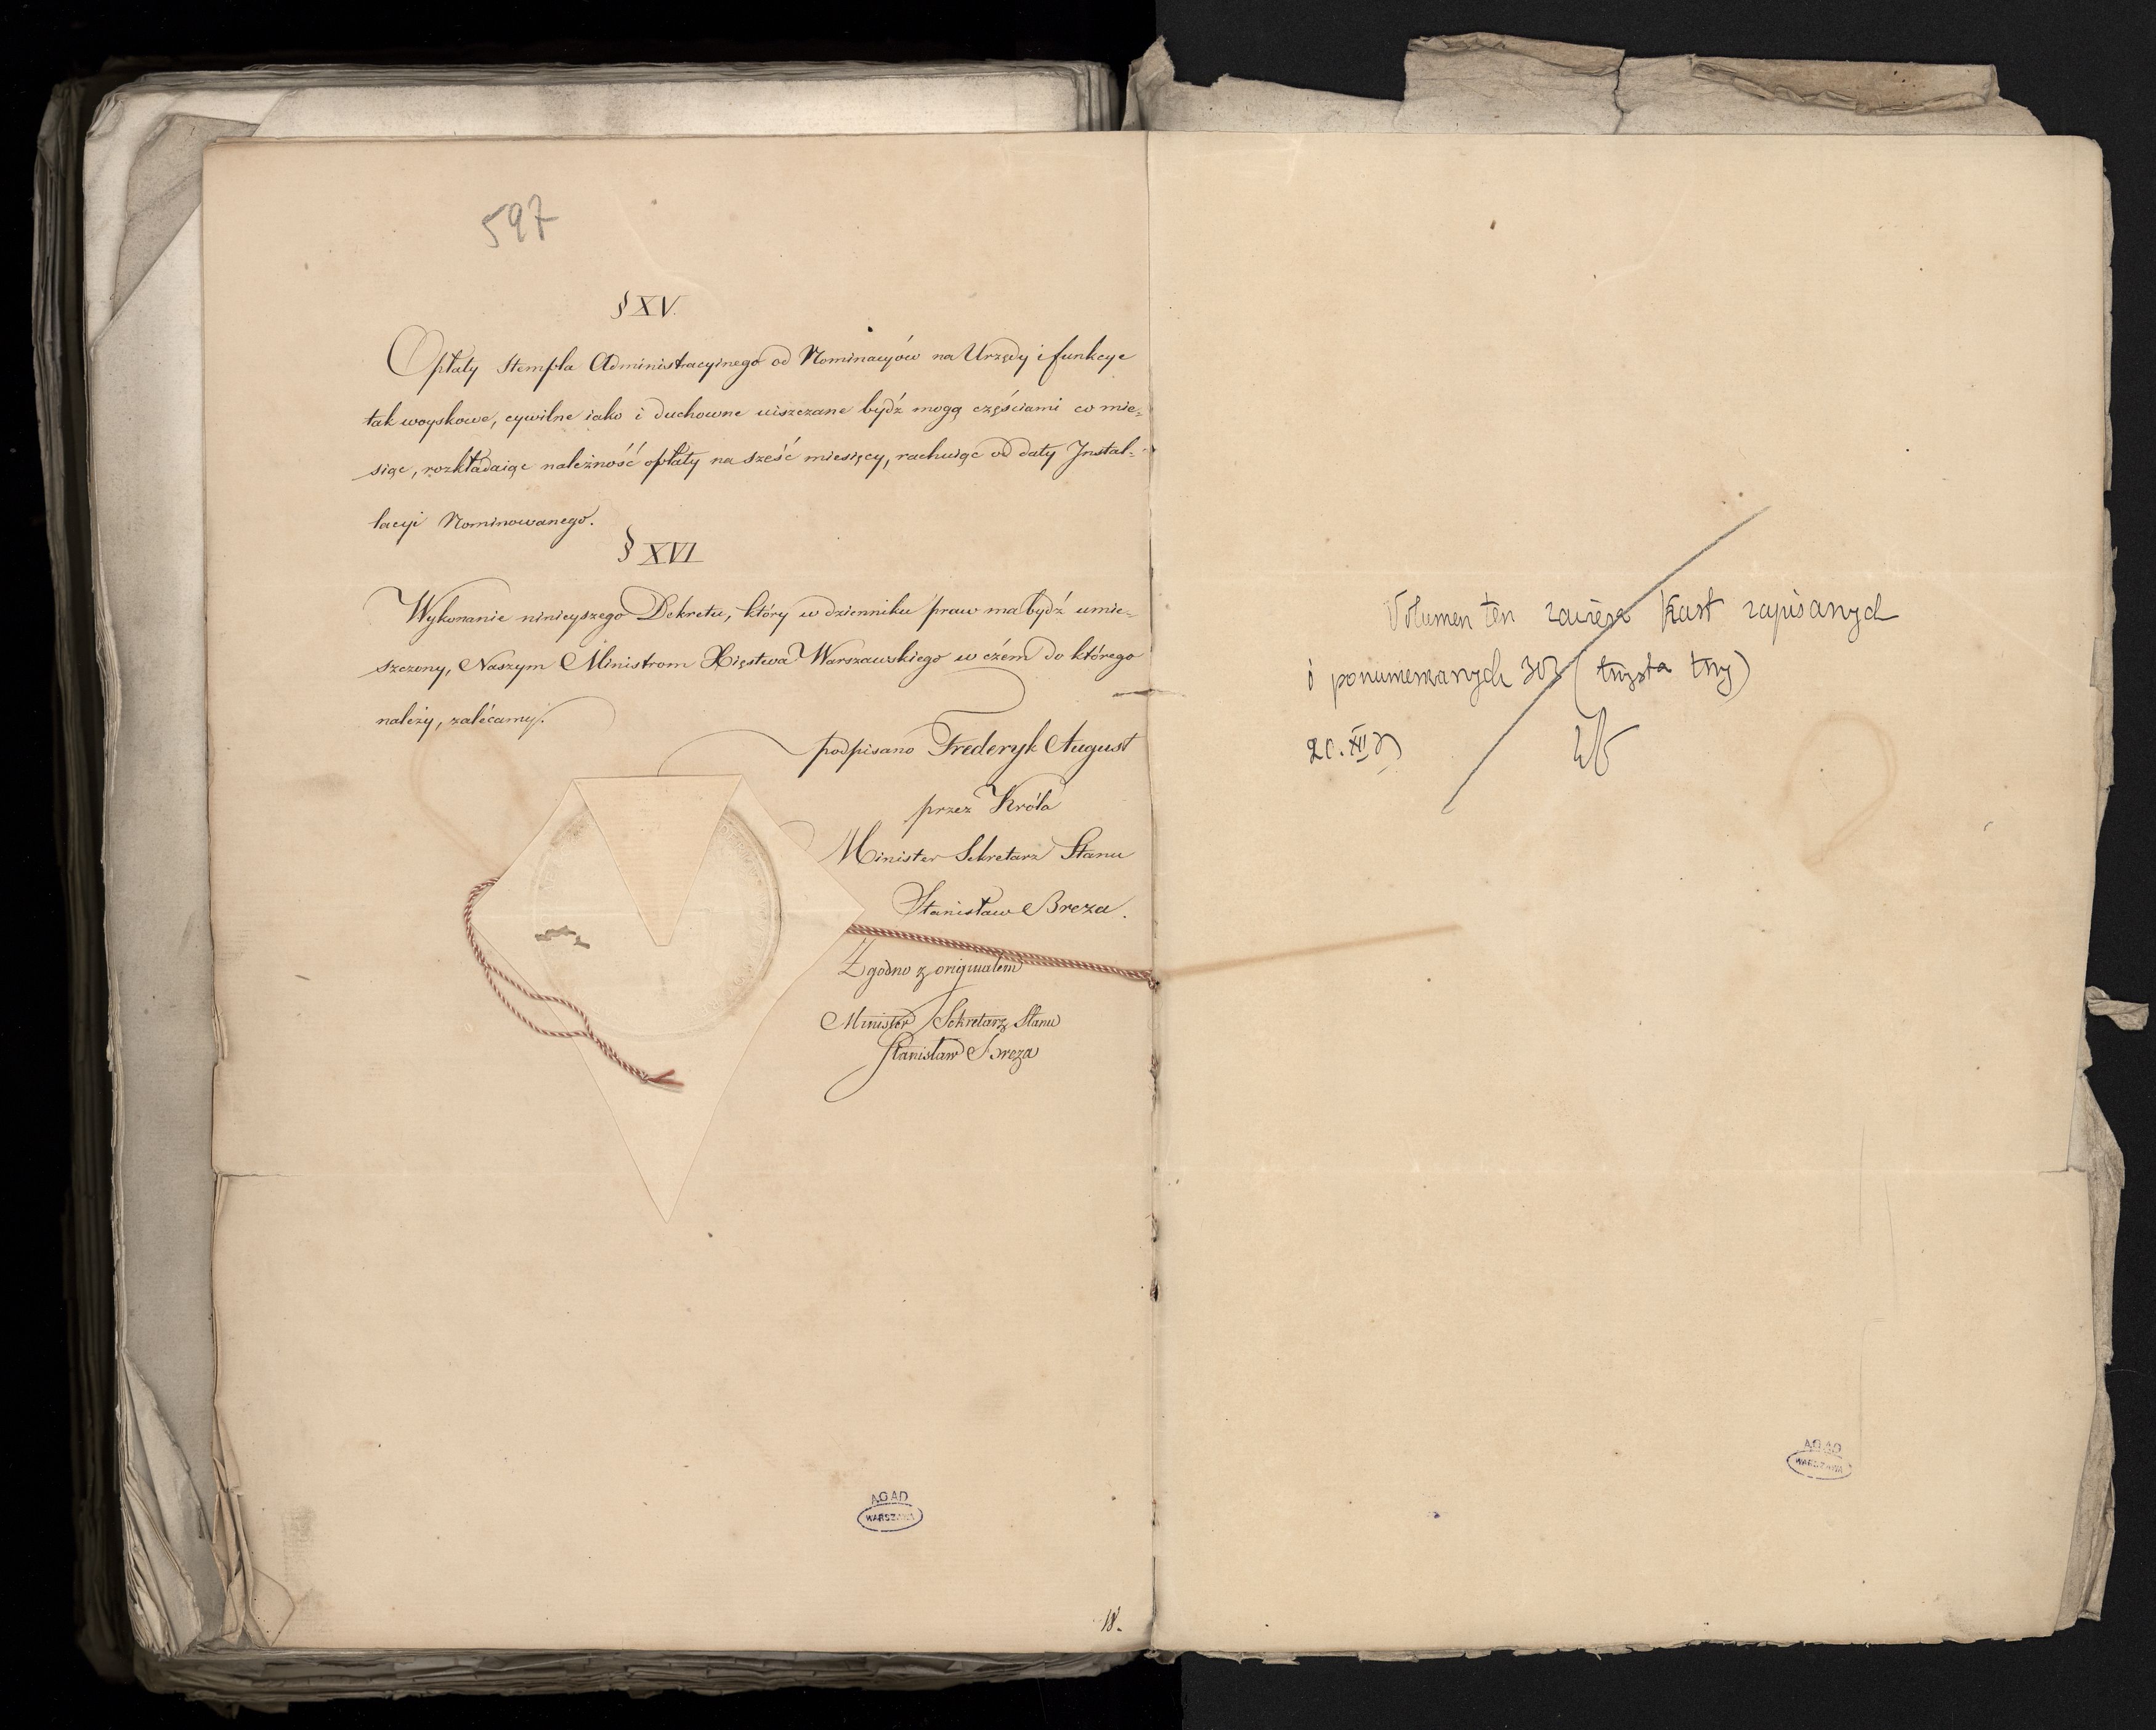 597
§ XV.
Opłaty Stempla Administracyinego od Nominacyów na Urzędy i funkcye
tak woyskowe, cywilne iako i duchowne uiszczane bydź mogą częściami co mie-
siąc, rozkładaiąc należność opłaty na sześć miesięcy, rachuiąc od daty Instal-
lacyi Nominowanego.
§ XVI
Wykonanie ninieyszego Dekretu, który w dzienniku praw ma bydź umie-
szczony, Naszym Ministrom Xięstwa Warszawskiego w czém do którego
należy, zalécamy.
podpisano Frederyk August
przez Króla
Minister Sekretarz Stanu
Stanisław Breza.
Zgodno z originałem
Minister Sekretarz Stanu
Stanisław Breza
AGAD
WARSZAWA
18.
Volumen ten zawiera kart zapisanych
i ponumerowanych 303 (trzysta trzy)
20. XII
AGAD
WARSZAWA